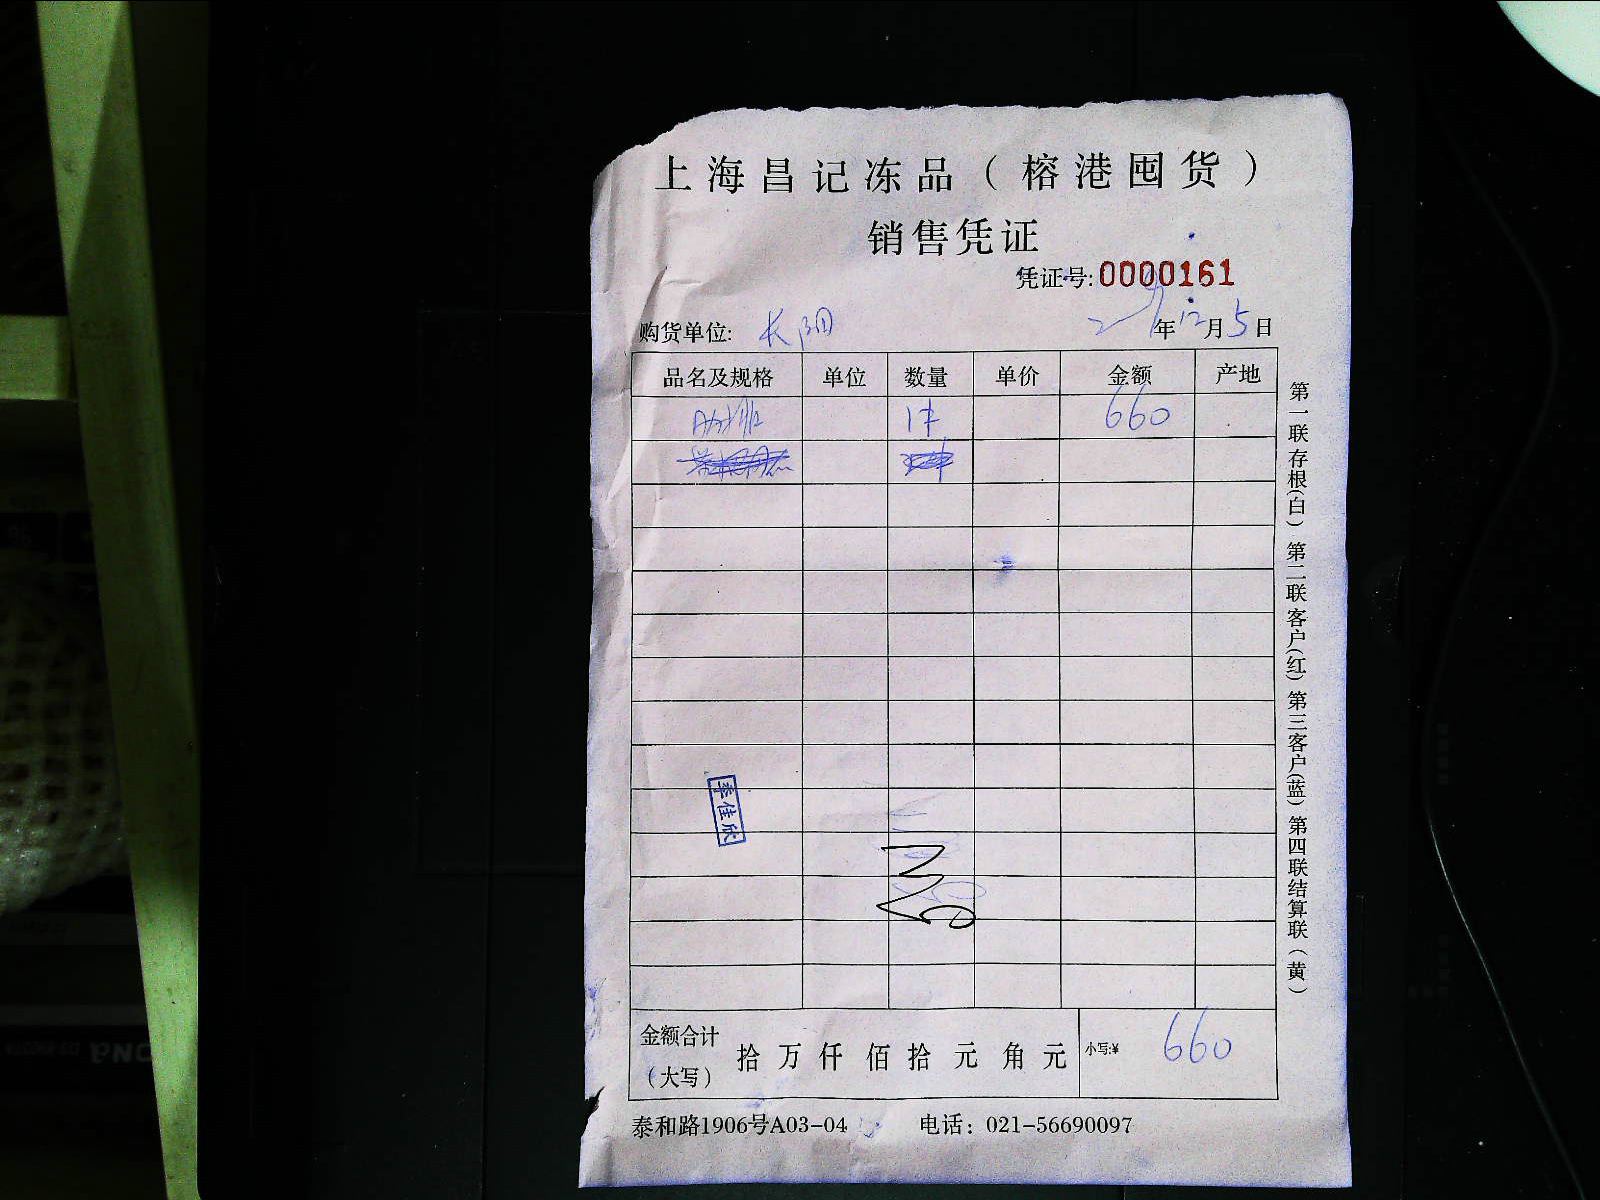 上海昌记冻品（榕港囤货）
销售凭证
凭证号: 0000161
购货单位: 长阳 21年12月5日
品名及规格 单位 数量 单价 金额 产地
1件 660
季佳欣
金额合计（大写） 拾万仟佰拾元角元 小写:¥ 660
泰和路1906号A03-04 电话：021-56690097
第一联存根(白) 第二联客户(红) 第三客户(蓝) 第四联结算联（黄）